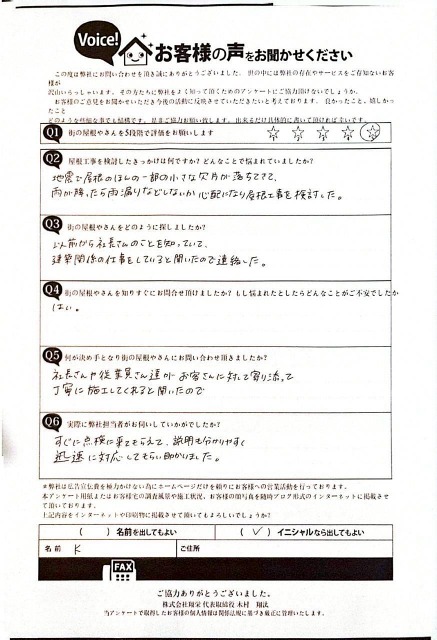 Voice!
お客様の声をお聞かせください
この度は弊社にお問い合わせを頂き誠にありがとうございました。世の中には弊社の存在やサービスをご存知ないお客様が
沢山いらっしゃいます。その方たちに弊社をよく知って頂くためのアンケートにご協力頂けないでしょうか。
お客様のご意見をお聞かせいただき今後の活動に反映させていただきたいと考えております。良かったこと、嬉しかったこと
どのような些細な事でも結構です。是非ご協力お願い致します。出来るだけ具体的に書いて頂ければ幸いです。
Q1 街の屋根やさんを5段階で評価をお願いします
☆ ☆ ☆ ☆ ☆
Q2 屋根工事を検討したきっかけは何ですか? どんなことで悩まれていましたか?
地震で屋根のほんの一部の小さな欠片が落ちてきて、
雨が降ったら雨漏りなどしないか心配になり屋根工事を検討した。
Q3 街の屋根やさんをどのように探しましたか?
以前から社長さんのことを知っていて、
建築関係の仕事をしていると聞いたので連絡した。
Q4 街の屋根やさんを知りすぐにお問合せ頂けましたか? もし悩まれたとしたらどんなことがご不安でしたか
はい。
Q5 何が決め手となり街の屋根やさんにお問い合わせ頂きましたか?
社長さんや従業員さん達が お客さんに対して寄り添って
丁寧に施工してくれると聞いたので
Q6 実際に弊社担当者がお伺いしていかがでしたか?
すぐに点検に来てもらえて、説明も分かりやすく
迅速に対応してもらい助かりました。
※弊社は広告宣伝費を極力かけない為にホームページだけを頼りにお客様への営業活動を行っております。
本アンケート用紙またはお客様宅の調査風景や施工状況、お客様の顔写真を随時ブログ形式のインターネットに掲載させて頂いております。
上記内容をインターネットや印刷物に掲載させて頂いてもよろしいでしょうか?
( ) 名前を出してもよい ( ✓ ) イニシャルなら出してもよい
名前 K ご住所
FAX
ご協力ありがとうございました。
株式会社翔栄 代表取締役 木村 翔汰
当アンケートで取得したお客様の個人情報は関係法規に基づき厳正に管理いたします。